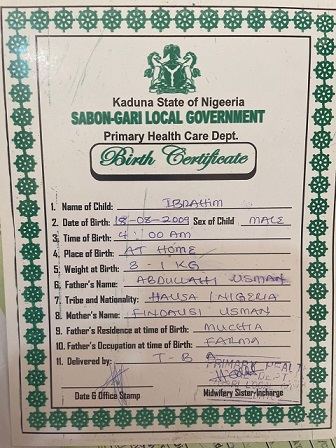 Kaduna State of Nigeeria
SABON-GARI LOCAL GOVERNMENT
Primary Health Care Dept.
Birth Certificate
1. Name of Child: IBRAHIM
2. Date of Birth: 18-08-2009 Sex of Child MALE
3. Time of Birth: 4:00 AM
4. Place of Birth: AT HOME
5. Weight at Birth: 3-1KG
6. Father's Name: ABDULLAHI USMAN
7. Tribe and Nationality: HAUSA / NIGERIA
8. Mother's Name: FINDAUSI USMAN
9. Father's Residence at time of Birth: MUCHIA
10. Father's Occupation at time of Birth: FARMA
11. Delivered by: T-B A
PRIMARY HEALTH
Date & Office Stamp Midwifery Sister-Incharge